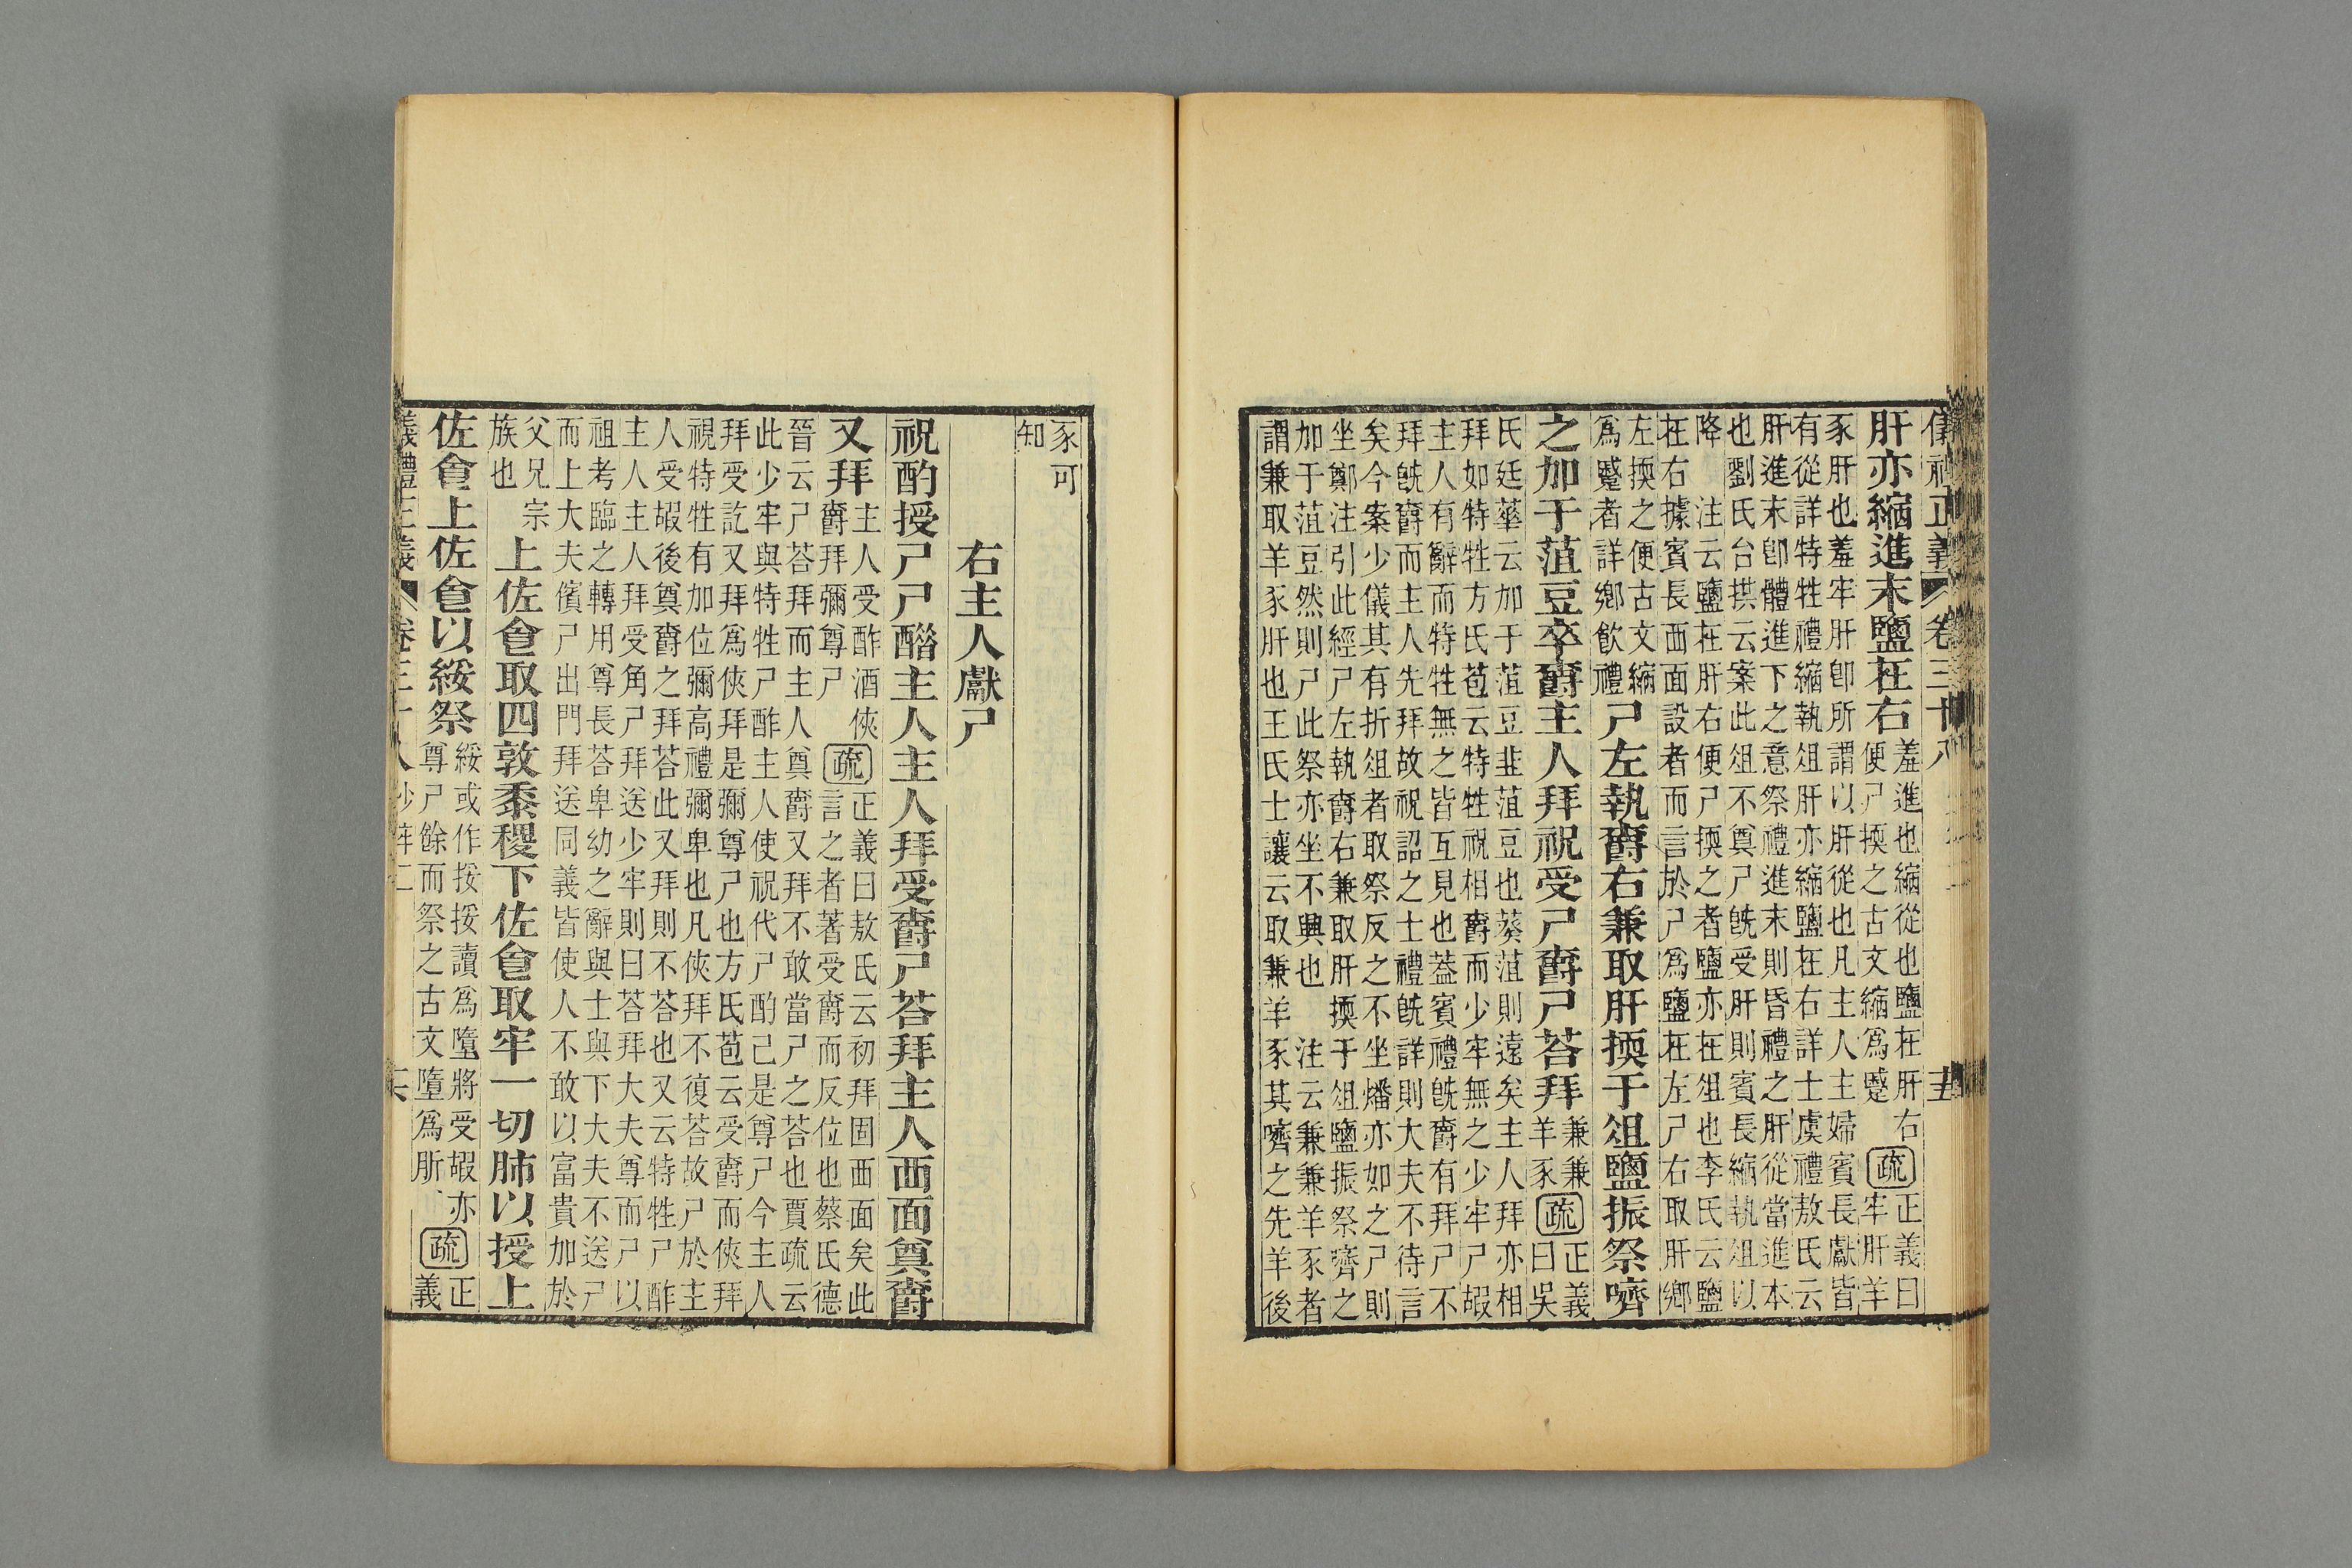 肝亦縮進末鹽在右
羞進也縮從也鹽在肝右
便尸㨎之古文縮爲蹙
疏
正義曰
牢肝羊
豕肝也羞牢肝卽所謂以肝從也凡主人主婦賓長獻皆
有從詳特牲禮縮執俎肝亦縮鹽在右詳士虞禮敖氏云
肝進末卽體進下之意祭禮進末則昏禮之肝從當進本
也劉氏台拱云案此俎不奠尸旣受肝則賓長縮執俎以
降　注云鹽在肝右便尸㨎之者鹽亦在俎也李氏云鹽
在右據賓長西面設者而言於尸爲鹽在左尸右取肝鄉
左㨎之便古文縮
爲蹙者詳鄉飮禮
尸左執爵右兼取肝㨎于俎鹽振祭嚌
之加于菹豆卒爵主人拜祝受尸爵尸荅拜
兼兼
羊豕
疏
正義
曰吳
氏廷華云加于菹豆韭菹豆也葵菹則遠矣主人拜亦相
拜如特牲方氏苞云特牲祝相爵而少牢無之少牢尸嘏
主人有辭而特牲無之皆互見也蓋賓禮旣爵有拜尸不
拜旣爵而主人先拜故祝詔之士禮旣詳則大夫不待言
矣今案少儀其有折俎者取祭反之不坐燔亦如之尸則
坐鄭注引此經尸左執爵右兼取肝㨎于俎鹽振祭嚌之
加于菹豆然則尸此祭亦坐不興也　注云兼兼羊豕者
謂兼取羊豕肝也王氏士讓云取兼羊豕其嚌之先羊後
豕可
知
右主人獻尸
祝酌授尸尸醋主人主人拜受爵尸荅拜主人西面奠爵
又拜
主人受酢酒俠
爵拜彌尊尸
疏
正義曰敖氏云初拜固西面矣此
言之者著受爵而反位也蔡氏德
晉云尸荅拜而主人奠爵又拜不敢當尸之荅也賈疏云
此少牢與特牲尸酢主人使祝代尸酌己是尊尸今主人
拜受訖又拜爲俠拜是彌尊尸也方氏苞云受爵而俠拜
視特牲有加位彌高禮彌卑也凡俠拜不復荅故尸於主
人受嘏後奠爵之拜荅此又拜則不荅也又云特牲尸酢
主人主人拜受角尸拜送少牢則曰荅拜大夫尊而尸以
祖考臨之轉用尊長荅卑幼之辭與士與下大夫不送尸
而上大夫儐尸出門拜送同義皆使人不敢以富貴加於
父兄宗
族也
上佐食取四敦黍稷下佐食取牢一切肺以授上
佐食上佐食以綏祭
綏或作挼挼讀爲墮將受嘏亦
尊尸餘而祭之古文墮爲肵
疏
正
義